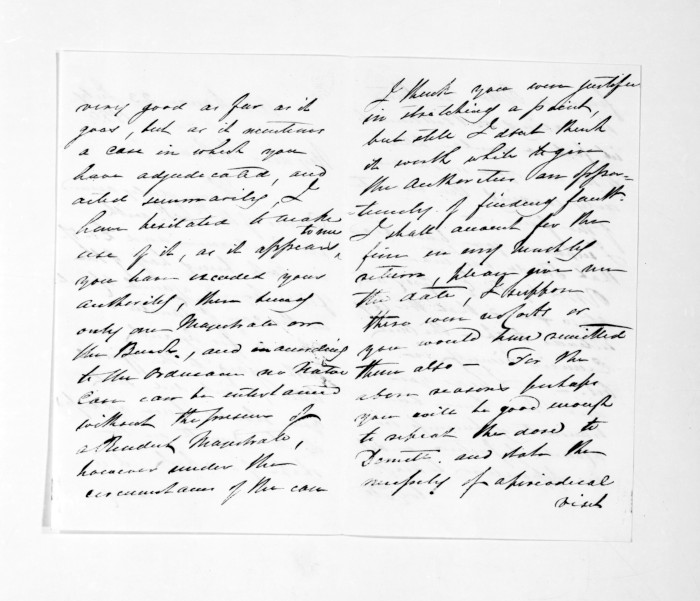 very good as far as it
goes, but as it mentions
a case in which you
have adjudicated, and
acted summarily, I
have hesitated to make
use of it, as it appears to me
you have exceeded your
authority, there being
only one Magistrate on
the Bench, and in according
to the Ordinance no Native
Case can be entertained
without the presence of
a Resident Magistrate,
however under the
circumstances of the case
I think you were justified
in stretching a point,
but still I don't think
it worth while to give
the Authorities an oppor-
tunity of finding fault.
I shall account for the
fine in my monthly
return, please give me
the date, I suppose
there were no Costs or
you would have remitted
them also — For the
above reasons perhaps
you will be good enough
to repeat the dose to
and state the
necessity of a periodical
visit